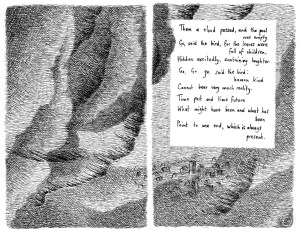 Then a cloud passed, and the pool
was empty
Go, said the bird, for the leaves were
full of children.
Hidden excitedly, containing laughter
Go, Go go said the bird:
human kind
Cannot bear very much reality.
Time past and time future
What might have been and what has
been
Point to one end, which is always
present.